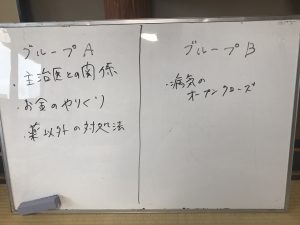 グループA
・主治医との関係
・お金のやりくり
・薬以外の対処法
グループB
・病気の
オープンクローズ